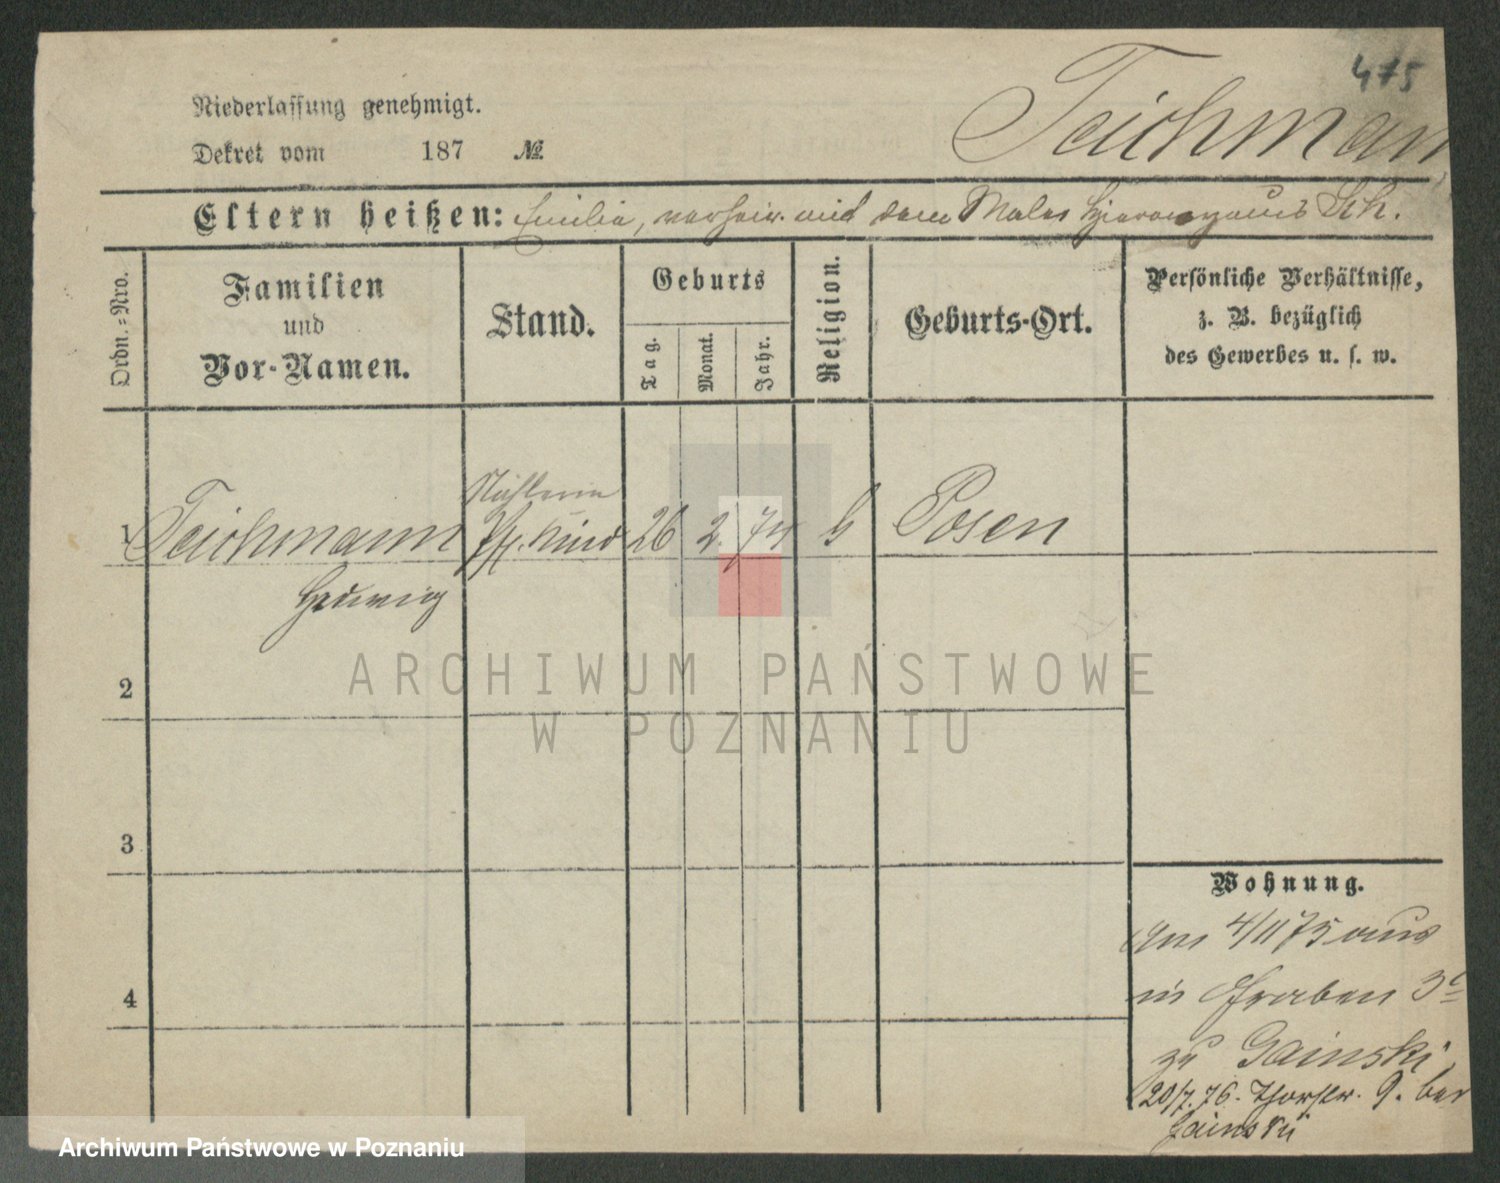 475
Teichman
Niederlassung genehmigt.
Dekret vom 187 №
Eltern heißen: Emilia, verheir. mit dem Maler Hieronymus Sch.
Ordn.=Nro.
Familien
und
Vor-Namen.
Stand.
Geburts
Tag.
Monat.
Jahr.
Religion.
Geburts-Ort.
Persönliche Verhältnisse,
z. B. bezüglich
des Gewerbes u. s. w.
1 Teichmann Kind 26 2. 74 Posen
Hedwig
2
3
4
Wohnung.
Am 4/11 75 aus
in Graben 3
zu Gainski
20/7. 76. 9. bei
Gainski
ARCHIWUM PAŃSTWOWE
W POZNANIU
Archiwum Państwowe w Poznaniu